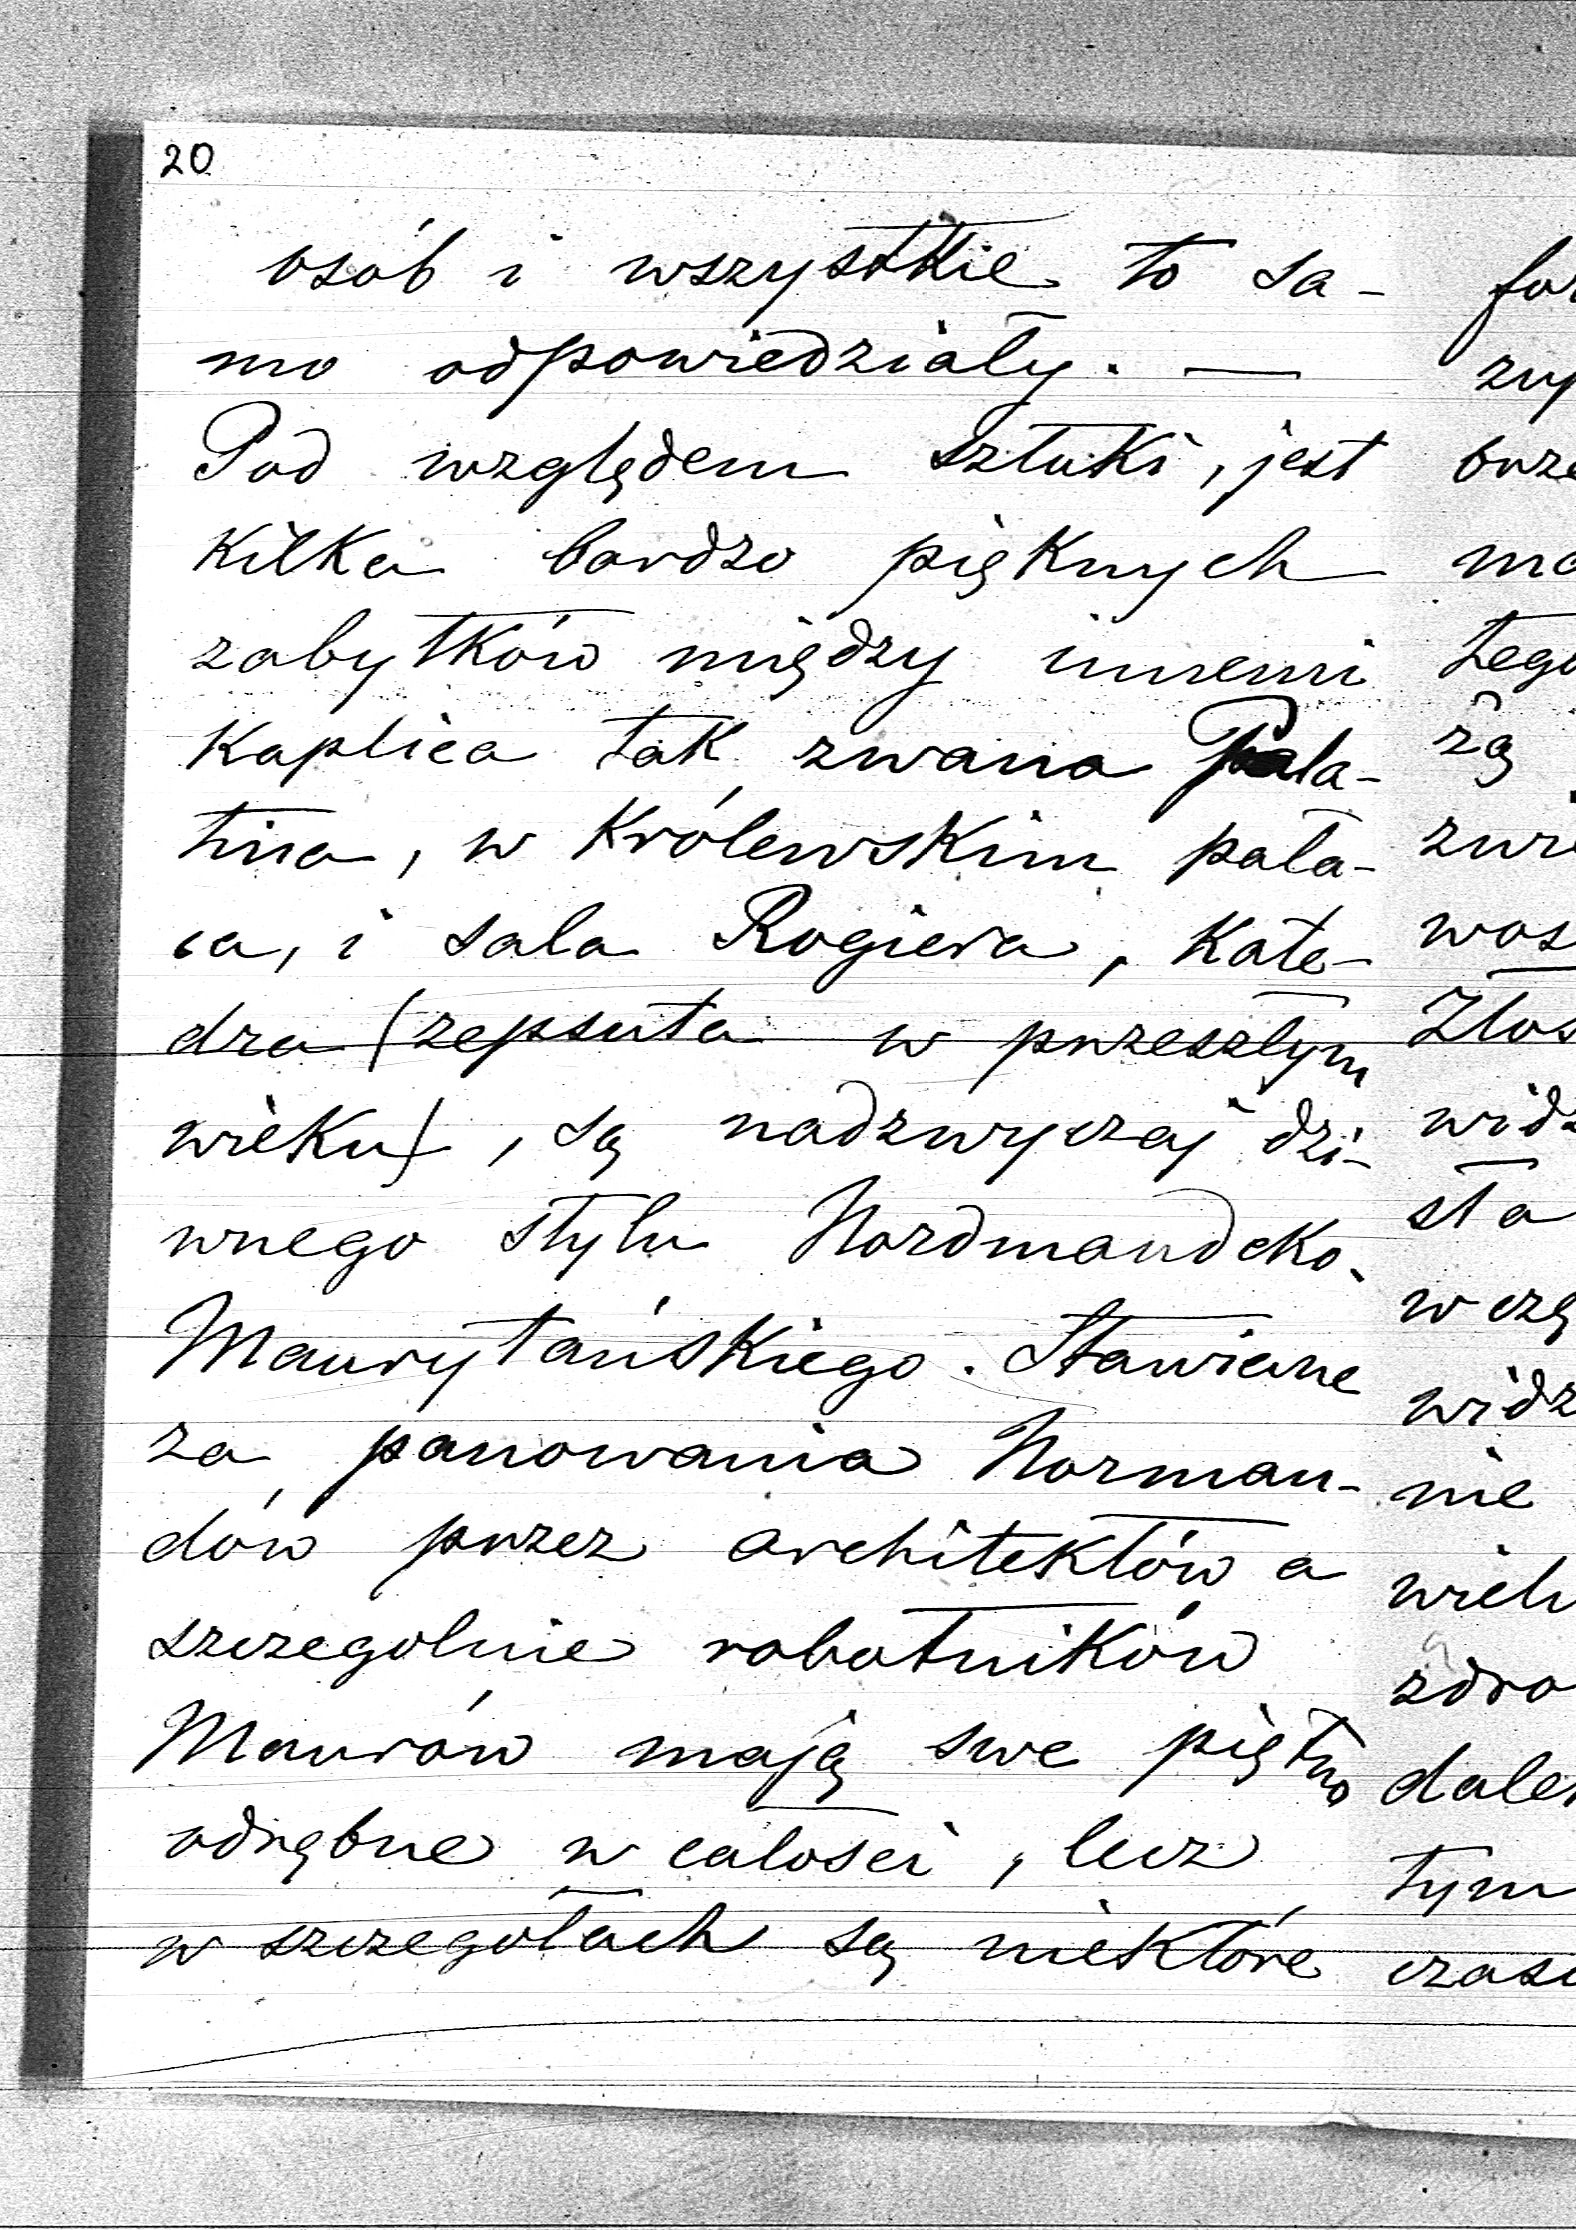 20
osób i wszystkie to sa-
mo odpowiedziały. —
Pod względem sztuki, jest
kilka bardzo pięknych
zabytków między innemi
Kaplica tak zwana Pala-
tina, w Królewskim pała-
ca, i sala Rogiera, Kate-
dra (zepsuta w przeszłym
wieku), są nadzwyczaj dzi-
wnego stylu Nordmandcko-
Maurytańskiego. Stawiane
za panowania Norman-
dów przez architektów a
szczegolnie robotników
Maurów mają swe piętno
odrębne w całosci, lecz
w szczegołach są niektóre
tego
żą
nie
tym